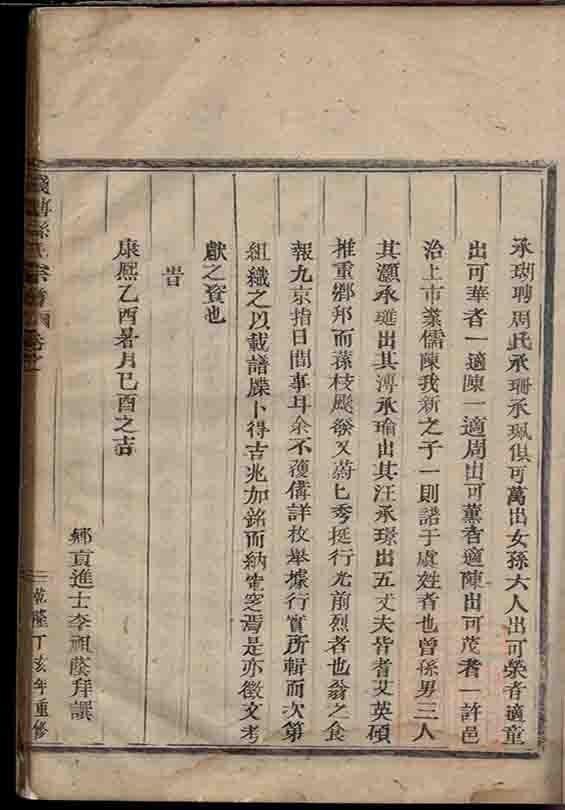 承瑚聘周氏承珊承珮俱可萬出女孫六人出可榮者適童
出可華者一適陳一適周出可薰者適陳出可茂者一許邑
治上市業儒陳我新之子一則諾于虞姓者也曾孫男三人
其灝承璡出其溥承瑜出其汪承璟出五丈夫皆者艾英碩
推重鄉邦而蓀枝颷發又蔚匕秀挺行光前烈者也翁之食
報九京指日間事耳余不獲備詳枚舉據行實所輯而次第
組織之以載譜牒卜得吉兆加銘而納窀穸焉是亦徵文考
獻之資也
旹
康熙乙酉暑月巳酉之吉
鄉貢進士李祖蔭拜譔
孫氏宗譜
乾隆丁亥年重修